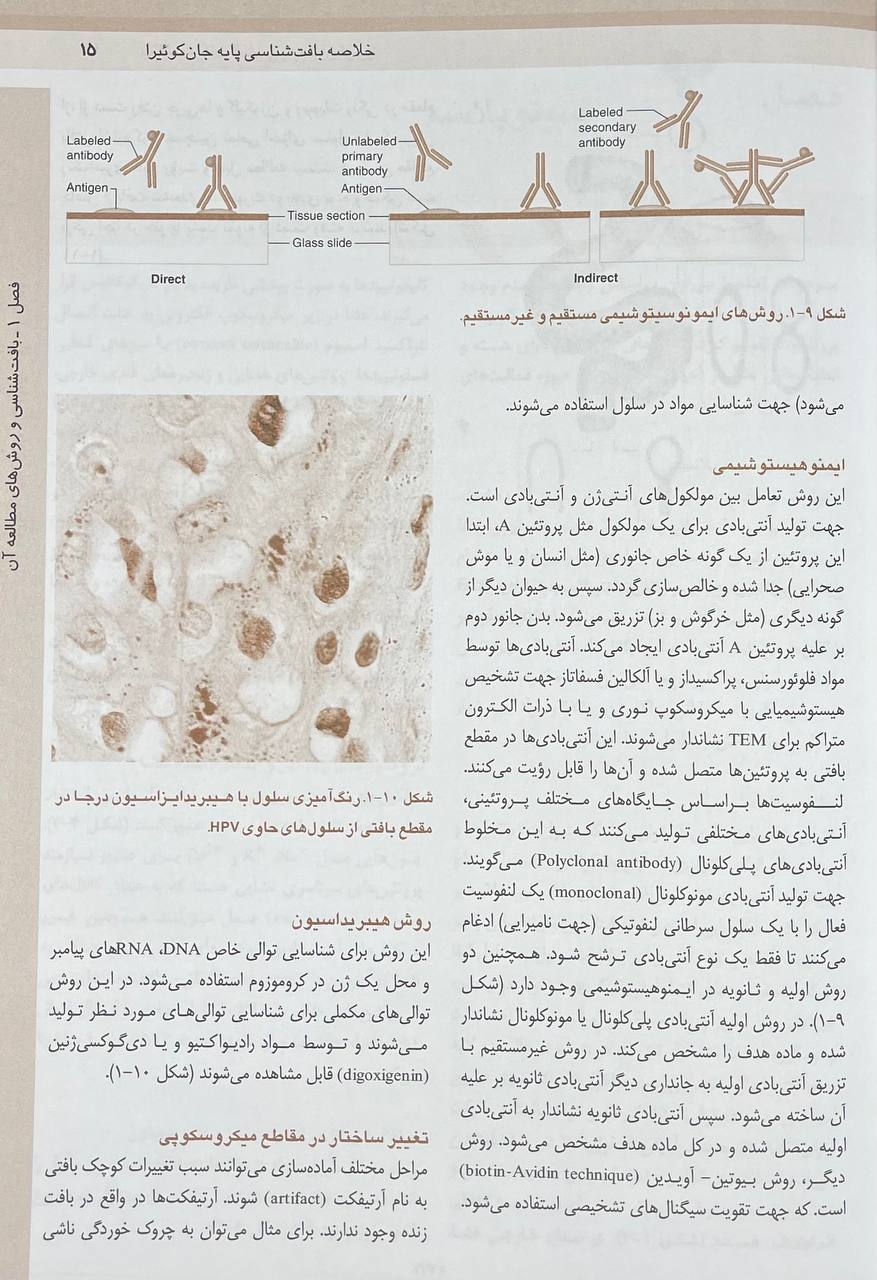 خلاصه بافت‌شناسی پایه جان‌کوئیرا ۱۵
فصل ۱ ـ بافت‌شناسی و روش‌های مطالعه آن
Labeled
antibody
Antigen
Unlabeled
primary
antibody
Antigen
Labeled
secondary
antibody
Tissue section
Glass slide
Direct
Indirect
شکل ۹-۱. روش‌های ایمونوسیتوشیمی مستقیم و غیرمستقیم.
می‌شود) جهت شناسایی مواد در سلول استفاده می‌شوند.
ایمنوهیستوشیمی
این روش تعامل بین مولکول‌های آنتی‌ژن و آنتی‌بادی است.
جهت تولید آنتی‌بادی برای یک مولکول مثل پروتئین A، ابتدا
این پروتئین از یک گونه خاص جانوری (مثل انسان و یا موش
صحرایی) جدا شده و خالص‌سازی گردد. سپس به حیوان دیگر از
گونه دیگری (مثل خرگوش و بز) تزریق می‌شود. بدن جانور دوم
بر علیه پروتئین A آنتی‌بادی ایجاد می‌کند. آنتی‌بادی‌ها توسط
مواد فلوئورسنس، پراکسیداز و یا آلکالین فسفاتاز جهت تشخیص
هیستوشیمیایی با میکروسکوپ نوری و یا با ذرات الکترون
متراکم برای TEM نشاندار می‌شوند. این آنتی‌بادی‌ها در مقطع
بافتی به پروتئین‌ها متصل شده و آن‌ها را قابل رؤیت می‌کنند.
لنفوسیت‌ها براساس جایگاه‌های مختلف پروتئینی،
آنتی‌بادی‌های مختلفی تولید می‌کنند که به این مخلوط
آنتی‌بادی‌های پلی‌کلونال (Polyclonal antibody) می‌گویند.
جهت تولید آنتی‌بادی مونوکلونال (monoclonal) یک لنفوسیت
فعال را با یک سلول سرطانی لنفوتیکی (جهت نامیرایی) ادغام
می‌کنند تا فقط یک نوع آنتی‌بادی ترشح شود. همچنین دو
روش اولیه و ثانویه در ایمنوهیستوشیمی وجود دارد (شکل
۹-۱). در روش اولیه آنتی‌بادی پلی‌کلونال یا مونوکلونال نشاندار
شده و ماده هدف را مشخص می‌کند. در روش غیرمستقیم با
تزریق آنتی‌بادی اولیه به جانداری دیگر آنتی‌بادی ثانویه بر علیه
آن ساخته می‌شود. سپس آنتی‌بادی ثانویه نشاندار به آنتی‌بادی
اولیه متصل شده و در کل ماده هدف مشخص می‌شود. روش
دیگر، روش بیوتین- آویدین (biotin-Avidin technique)
است. که جهت تقویت سیگنال‌های تشخیصی استفاده می‌شود.
شکل ۱۰-۱. رنگ‌آمیزی سلول با هیبریدایزاسیون درجا در
مقطع بافتی از سلول‌های حاوی HPV.
روش هیبریداسیون
این روش برای شناسایی توالی خاص DNA، RNAهای پیامبر
و محل یک ژن در کروموزوم استفاده می‌شود. در این روش
توالی‌های مکملی برای شناسایی توالی‌های مورد نظر تولید
می‌شوند و توسط مواد رادیواکتیو و یا دی‌گوکسی‌ژنین
(digoxigenin) قابل مشاهده می‌شوند (شکل ۱۰-۱).
تغییر ساختار در مقاطع میکروسکوپی
مراحل مختلف آماده‌سازی می‌توانند سبب تغییرات کوچک بافتی
به نام آرتیفکت (artifact) شوند. آرتیفکت‌ها در واقع در بافت
زنده وجود ندارند. برای مثال می‌توان به چروک خوردگی ناشی